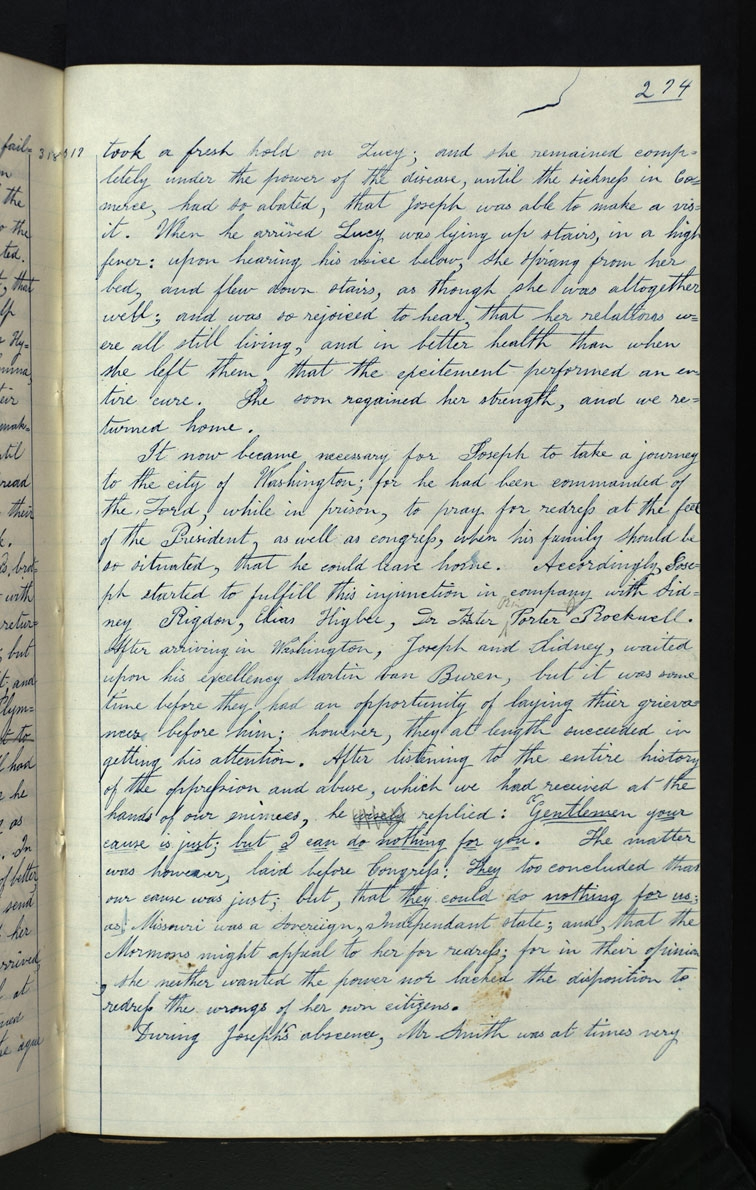 274
took a fresh hold on Lucy; and she remained comp=
letely under the power of the disease, until the sickness in Co=
merce, had so abated, that Joseph was able to make a vis=
it. When he arrived Lucy was lying up stairs, in a high
fever: upon hearing his voice below, she sprang from her
bed, and flew down stairs, as though she was altogether
well; and was so rejoiced to hear, that her relations w=
ere all still living, and in better health than when
she left them, that the excitement performed an en
tire cure. She soon regained her strength, and we re=
turned home.
It now became necessary for Joseph to take a journey
to the city of Washington; for he had been commanded of
the Lord, while in prison, to pray for redress at the feet
of the President, as well as congress, when his family should be
so situated, that he could leave home. Accordingly, Jose=
ph started to fulfill this injunction in company with Sid=
ney Rigdon, Elias Higbee, Dr Porter Rockwell.
After arriving in Washington, Joseph and Sidney, waited
upon his excellency Martin van Buren, but it was some
time before they had an opportunity of laying thier grieva=
nces before him; however, they at length succeeded in
getting his attention. After listening to the entire history
of the oppression and abuse, which we had received at the
hands of our enimees, he replied: "Gentlemen your
cause is just; but I can do nothing for you. The matter
was however, laid before Congress; They too concluded that
our cause was just; but, that they could do nothing for us;
as Missouri was a Sovereign, Independant state; and, that the
Mormons might appeal to her for redress; for in their opinion
, she neither wanted the power nor lacked the disposition to
redress the wrongs of her own citizens.
During Joseph's abscence, Mr Smith was at times very